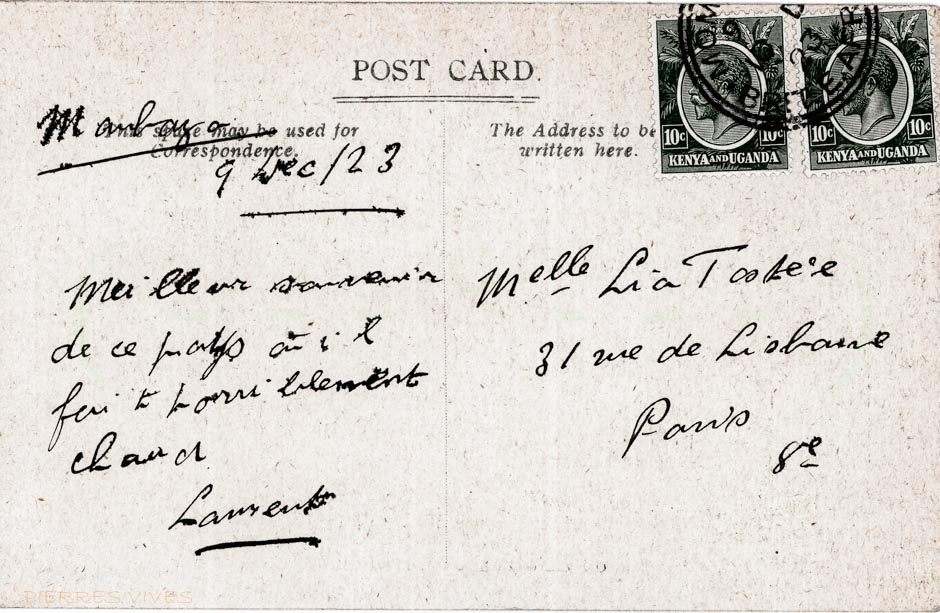 POST CARD.
This space may be used for
Correspondence.
The Address to be
written here.
9 Dec/23
Meilleur souvenir
de ce pays où il
fait horriblement
chaud
Laurent
Melle Lia
31 rue de Lisbonne
Paris
8e
10c 10c
KENYA AND UGANDA
10c 10c
KENYA AND UGANDA
PIERRES VIVES